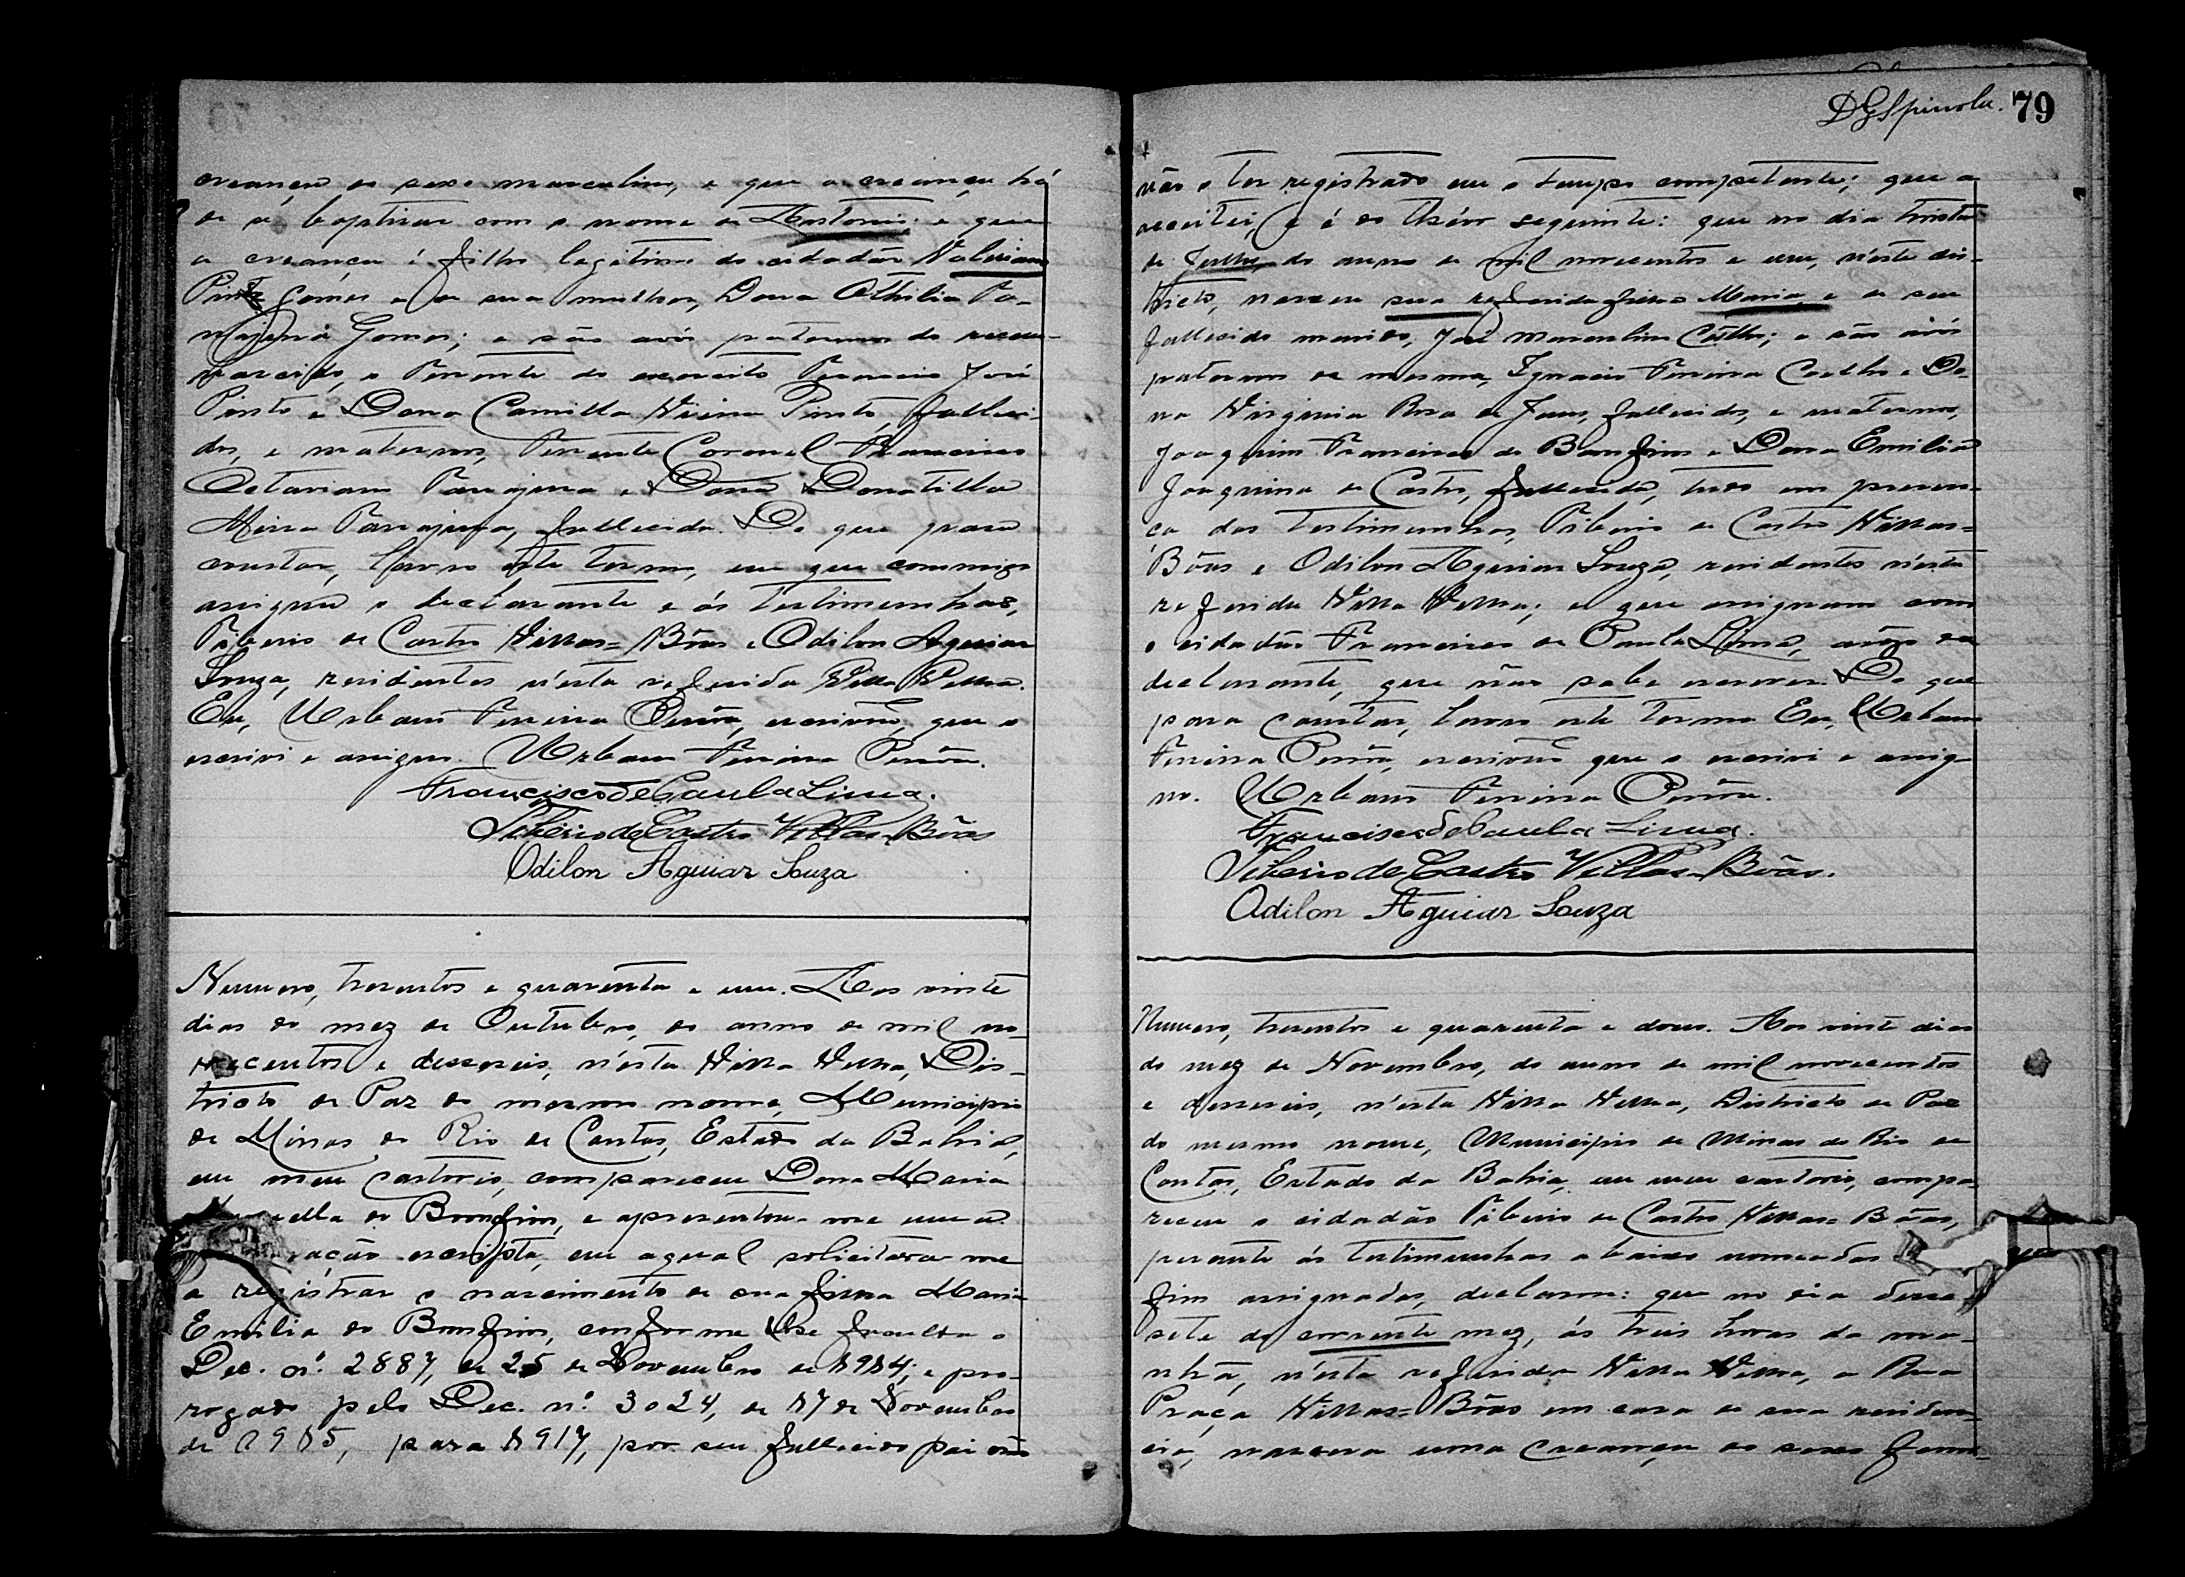 creança do sexo masculino, e que a creança há
de se baptisar com o nome de Antonio; e que
a creança é filho legitimo do cidadão Valeriano
Pinto Gomes e de sua mulher, Dona Othilia Pa-
najena Gomes; e são avós paternos do recem-
nascido, o Tenente do exercito Francisco José
Pinto e Dona Camilla Pinto, falleci-
dos, e maternos, Tenente Coronel Francisco
Octaviano e Dona Donatilla
fallecida. Do que para
constar, lavro este termo, em que commigo
assigna o declarante e ás testimunhas,
Tiberio de Castro Villas=Bôas e Odilon Aguiar
Souza, residentes n'esta referida Villa Velha.
Eu, Urbano Ferreira escrivão, que o
escrivi e assigno. Urbano Ferreira
Francisco de Paula Lima.
Tiberio de Castro Villas Bôas
Odilon Aguiar Souza
Numero, trezentos e quarenta e um. Aos vinte
dias do mez de Outubro, do anno de mil no-
vecentos e deseseis, n'esta Villa Velha, Dis-
tricto de Paz do mesmo nome, Municipio
de Minas do Rio de Contas, Estado da Bahia,
em meu cartorio, compareceu Dona Maria
do Bomfim, e apresentou-me uma
ração escripta, em a qual solicitava-me
a registrar o nascimento de sua filha Maria
Emilia do Bomfim, conforme lhe faculta o
Dec. nº. 2887, de 25 de Novembro de 1914, e pro-
rogado pelo Dec. nº 3024, de 17 de Novembro
de 1915, para 1917, por seu fallecido pai não
DGSpinola. 79
não o ter registrado em o tempo competente; que a
acceitei, e é do theor seguinte: que no dia trinta
de Julho, do anno de mil novecentos e um, n'este dis-
tricto, nasceu sua referida filha Maria, e de seu
fallecido marido, José Marcolino Coelho; e são avós
paternos da mesma, Ignacio Pereira Coelho e Do-
na Virginia Rosa de Jesus, fallecidos, e maternos,
Joaquim Francisco do Bomfim e Dona Emilia
Joaquina de Castro, fallecida, tudo em presen-
ça das testimunhas, Tiberio de Castro Villas=
Bôas e Odilon Aguiar Souza, residentes n'esta
referida Villa Velha; e que assignam com
o cidadão Francisco de Paula Lima, a rogo da
declarante, que não sabe escrever. Do que
para constar, lavro este termo. Eu, Urbano
Ferreira escrivão que o escrivi e assig-
no. Urbano Ferreira
Francisco de Paula Lima.
Tiberio de Castro Villas Bôas.
Odilon Aguiar Souza
Numero, trezentos e quarenta e dous. Aos vinte dias
do mez de Novembro, do anno de mil novecentos
e deseseis, n'esta Villa Velha, Districto de Paz
do mesmo nome, Municipio de Minas do Rio de
Contas, Estado da Bahia, em meu cartorio, compa-
receu o cidadão Tiberio de Castro Villas=Bôas,
perante ás testimunhas abaixo nomeadas
fim assignadas, declarou: que no dia deza-
sete do corrente mez, ás treis horas da ma-
nhã, n'esta referida Villa Velha, a Rua
Praça Villas=Bôas em casa de sua residen-
cia, nascera uma creança do sexo femi-